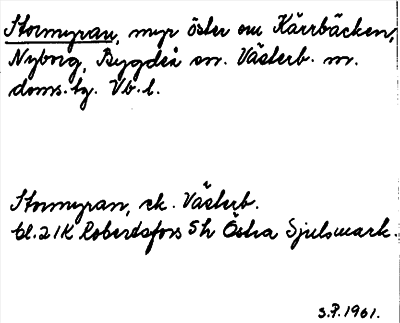 Stormyran, myr öster om Kärrbäcken,
Nyborg, Bygdeå sn. Västerb. m.
doms. tg. Vb. l.
Stormyran, ek. Västerb.
bl. 21K Robertsfors 5h Östra Sjulsmark.
S.P. 1961.